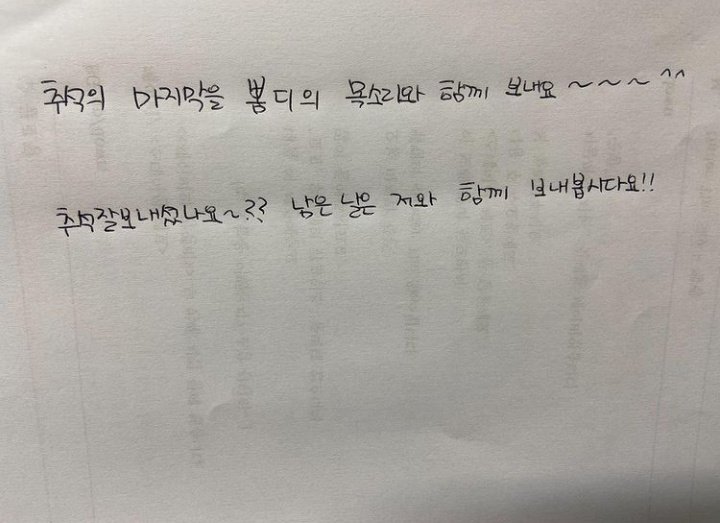 추석의 마지막을 뽐디의 목소리와 함께 보내요~~~^^
추석잘보내셨나요~?? 남은 날은 저와 함께 보내봅시다요!!